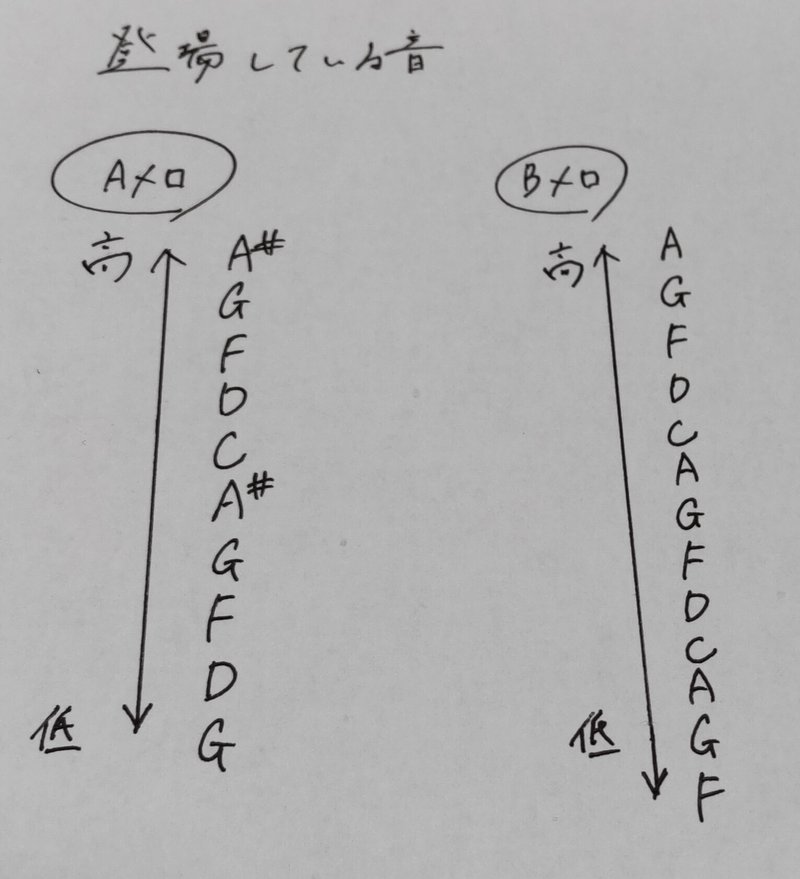 登場している音
Aメロ
高
A#
G
F
D
C
A#
G
F
D
G
低
Bメロ
高
A
G
F
D
C
A
G
F
D
C
A
G
F
低